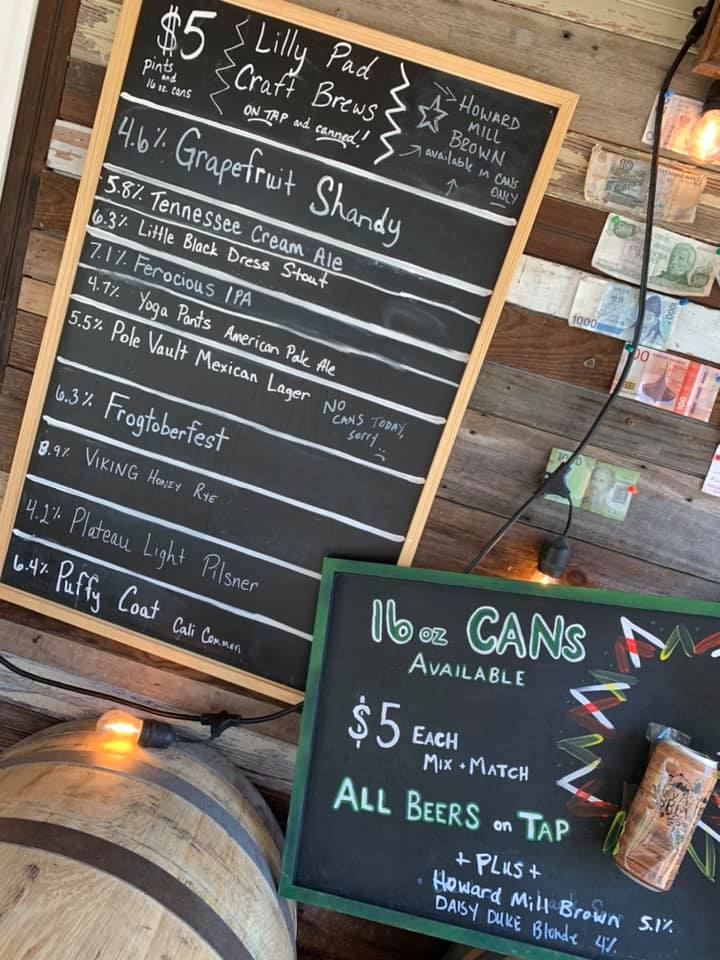 $5
pints
and
16 oz. cans
Lilly Pad
Craft Brews
ON TAP and canned!
HOWARD
MILL
BROWN
available in CANS
ONLY
4.6% Grapefruit Shandy
5.8% Tennessee Cream Ale
6.3% Little Black Dress Stout
7.1% Ferocious IPA
4.7% Yoga Pants American Pale Ale
5.5% Pole Vault Mexican Lager
NO
CANS TODAY,
sorry :(
6.3% Frogtoberfest
8.9% VIKING HONEY RYE
4.2% Plateau Light Pilsner
6.4% Puffy Coat Cali Common
16 oz CANS
AVAILABLE
$5 EACH
MIX + MATCH
ALL BEERS on TAP
+ PLUS +
Howard Mill Brown 5.1%
DAISY DUKE Blonde 4%
10
1000
1000
100